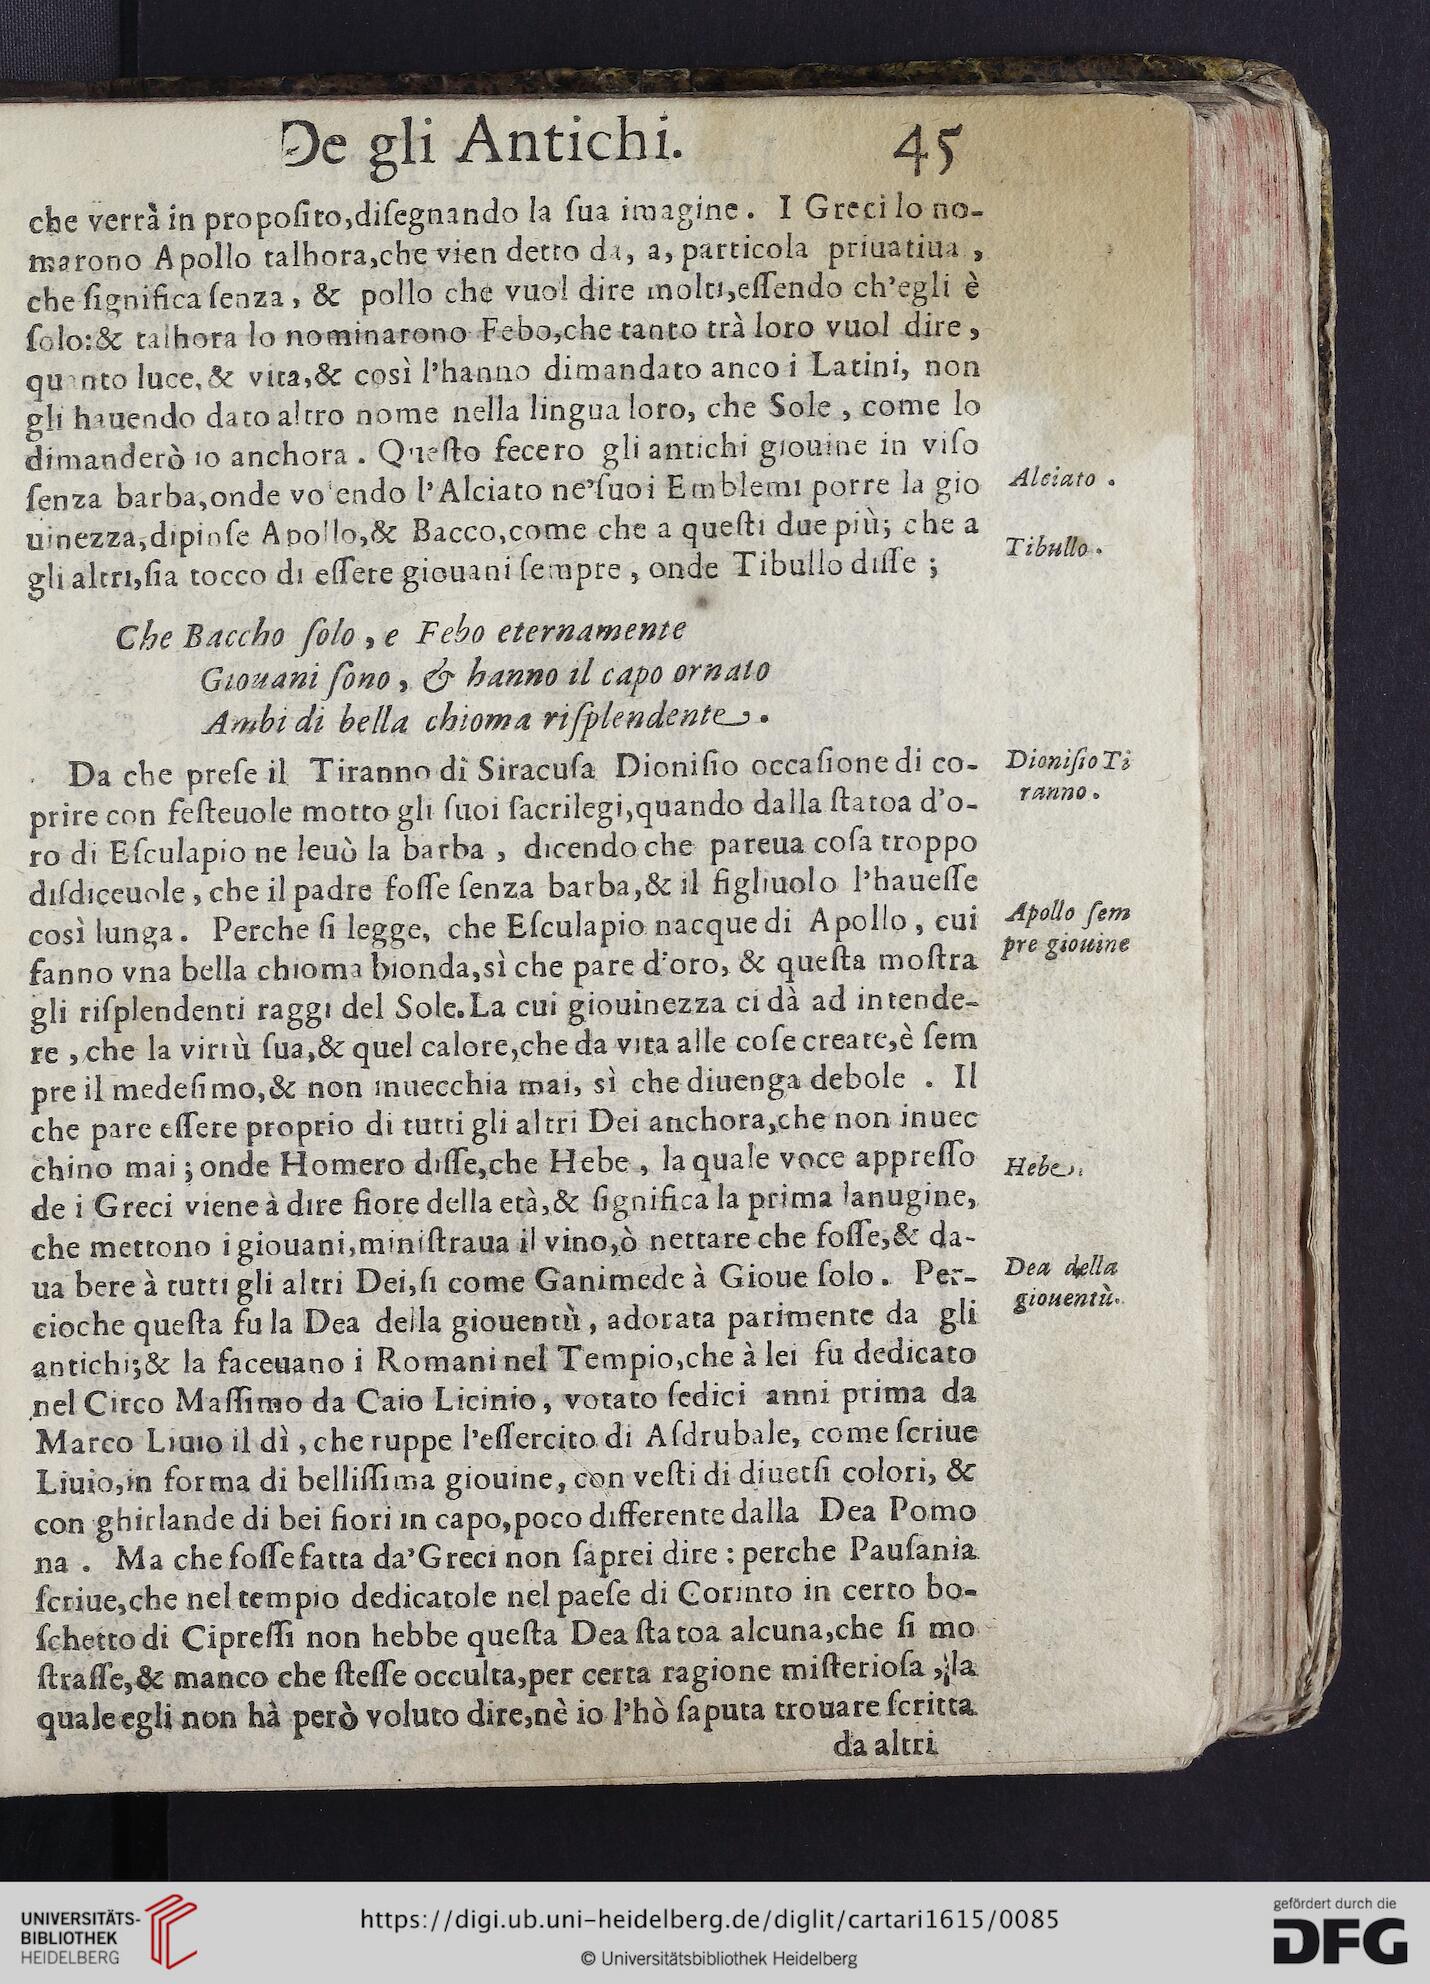 De gli Antichi. 45
che verrà in propoſito,diſegnando la ſua imagine. I Greci lo no-
marono Apollo talhora,che vien detto da, a, particola priuatiua ,
che ſignifica ſenza, & pollo che vuol dire molti,eſſendo ch'egli è
ſolo:& talhora lo nominarono Febo,che tanto trà loro vuol dire ,
quanto luce,& vita,& così l'hanno dimandato anco i Latini, non
gli hauendo dato altro nome nella lingua loro, che Sole , come lo
dimanderò io anchora . Queſto fecero gli antichi giouine in viſo
ſenza barba,onde volendo l'Alciato ne'ſuoi Emblemi porre la gio
Alciato .
uinezza,dipinſe Apollo,& Bacco,come che a queſti due più; che a
gli altri,ſia tocco di eſſere giouani ſempre , onde Tibullo diſſe ;
Tibullo .
Che Baccho ſolo , e Febo eternamente
Giouani ſono , & hanno il capo ornato
Ambi di bella chioma riſplendente .
Da che preſe il Tiranno di Siracuſa Dioniſio occaſione di co-
Dioniſio Ti
prire con feſteuole motto gli ſuoi ſacrilegi,quando dalla ſtatoa d'o-
ranno .
ro di Eſculapio ne leuò la barba , dicendo che pareua coſa troppo
diſdiceuole , che il padre foſſe ſenza barba,& il figliuolo l'haueſſe
così lunga. Perche ſi legge, che Eſculapio nacque di Apollo , cui
Apollo ſem
fanno vna bella chioma bionda,sì che pare d'oro, & queſta moſtra
pre giouine
gli riſplendenti raggi del Sole.La cui giouinezza ci dà ad intende-
re , che la virtù ſua,& quel calore,che da vita alle coſe create,è ſem
pre il medeſimo,& non inuecchia mai, sì che diuenga debole . Il
che pare eſſere proprio di tutti gli altri Dei anchora,che non inuec
chino mai ; onde Homero diſſe,che Hebe , la quale voce appreſſo
Hebe.
de i Greci viene à dire fiore della età,& ſignifica la prima lanugine,
che mettono i giouani,miniſtraua il vino,ò nettare che foſſe,& da-
ua bere à tutti gli altri Dei,ſi come Ganimede à Gioue ſolo . Per-
Dea della
cioche queſta fu la Dea della giouentù , adorata parimente da gli
giouentù.
antichi;& la faceuano i Romani nel Tempio,che à lei fu dedicato
nel Circo Maſſimo da Caio Licinio , votato ſedici anni prima da
Marco Liuio il dì , che ruppe l'eſſercito di Aſdrubale, come ſcriue
Liuio,in forma di belliſſima giouine, con veſti di diuerſi colori, &
con ghirlande di bei fiori in capo,poco differente dalla Dea Pomo
na . Ma che foſſe fatta da'Greci non ſaprei dire : perche Pauſania
ſcriue,che nel tempio dedicatole nel paeſe di Corinto in certo bo-
ſchetto di Cipreſſi non hebbe queſta Dea ſtatoa alcuna,che ſi mo
ſtraſſe,& manco che ſteſſe occulta,per certa ragione miſterioſa , la
quale egli non hà però voluto dire,nè io l'hò ſaputa trouare ſcritta
da altri
UNIVERSITÄTS-
BIBLIOTHEK
HEIDELBERG
https://digi.ub.uni-heidelberg.de/diglit/cartari1615/0085
© Universitätsbibliothek Heidelberg
gefördert durch die
DFG